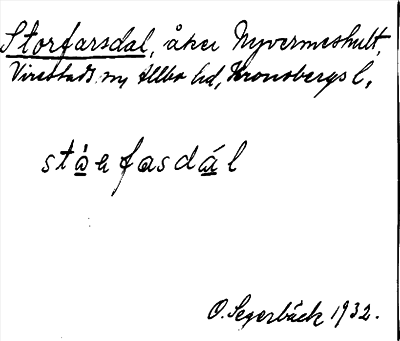 Storfarsdal, åker Nyvermeshult,
Virestads sn, Allbo hd, Kronobergs l.
stȯrfasdál
O. Segerbäck 1932.